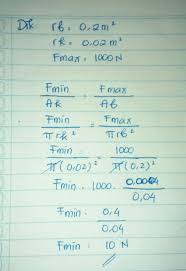 Dik rb = 0,2 m²
rk = 0.02 m²
Fmax = 1000 N
Fmin / Ak = Fmax / Ab
Fmin / πrk² = Fmax / πrb²
Fmin / π(0,02)² = 1000 / π(0,2)²
Fmin = 1000 . 0.0004 / 0,04
Fmin = 0,4 / 0,04
Fmin = 10 N